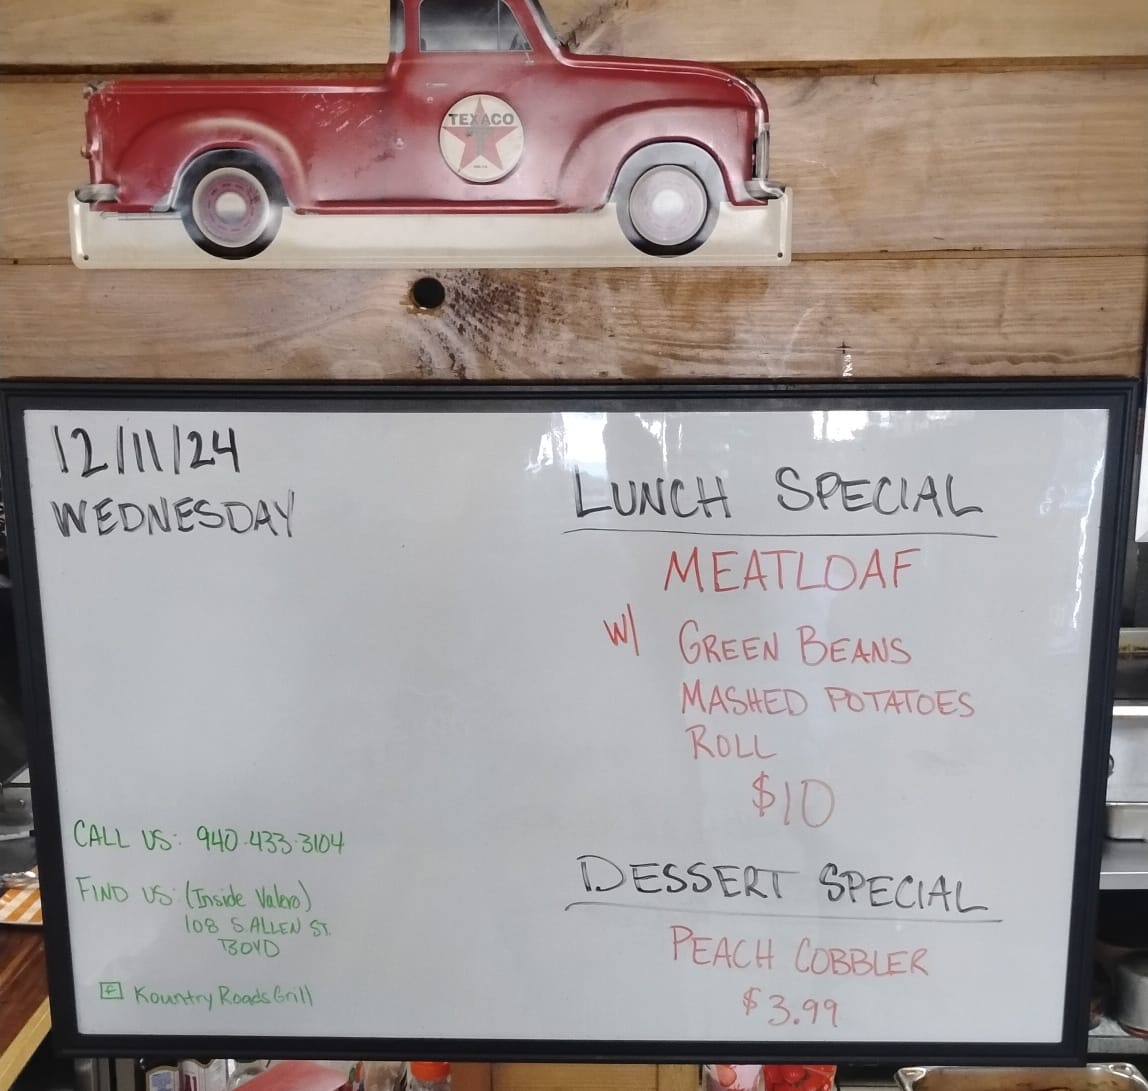 TEXACO
12/11/24
WEDNESDAY
LUNCH SPECIAL
MEATLOAF
W/ GREEN BEANS
MASHED POTATOES
ROLL
$10
DESSERT SPECIAL
PEACH COBBLER
$3.99
CALL US: 940-433-3104
FIND US: (Inside Valero)
108 S. ALLEN ST.
BOYD
f Kountry Roads Grill